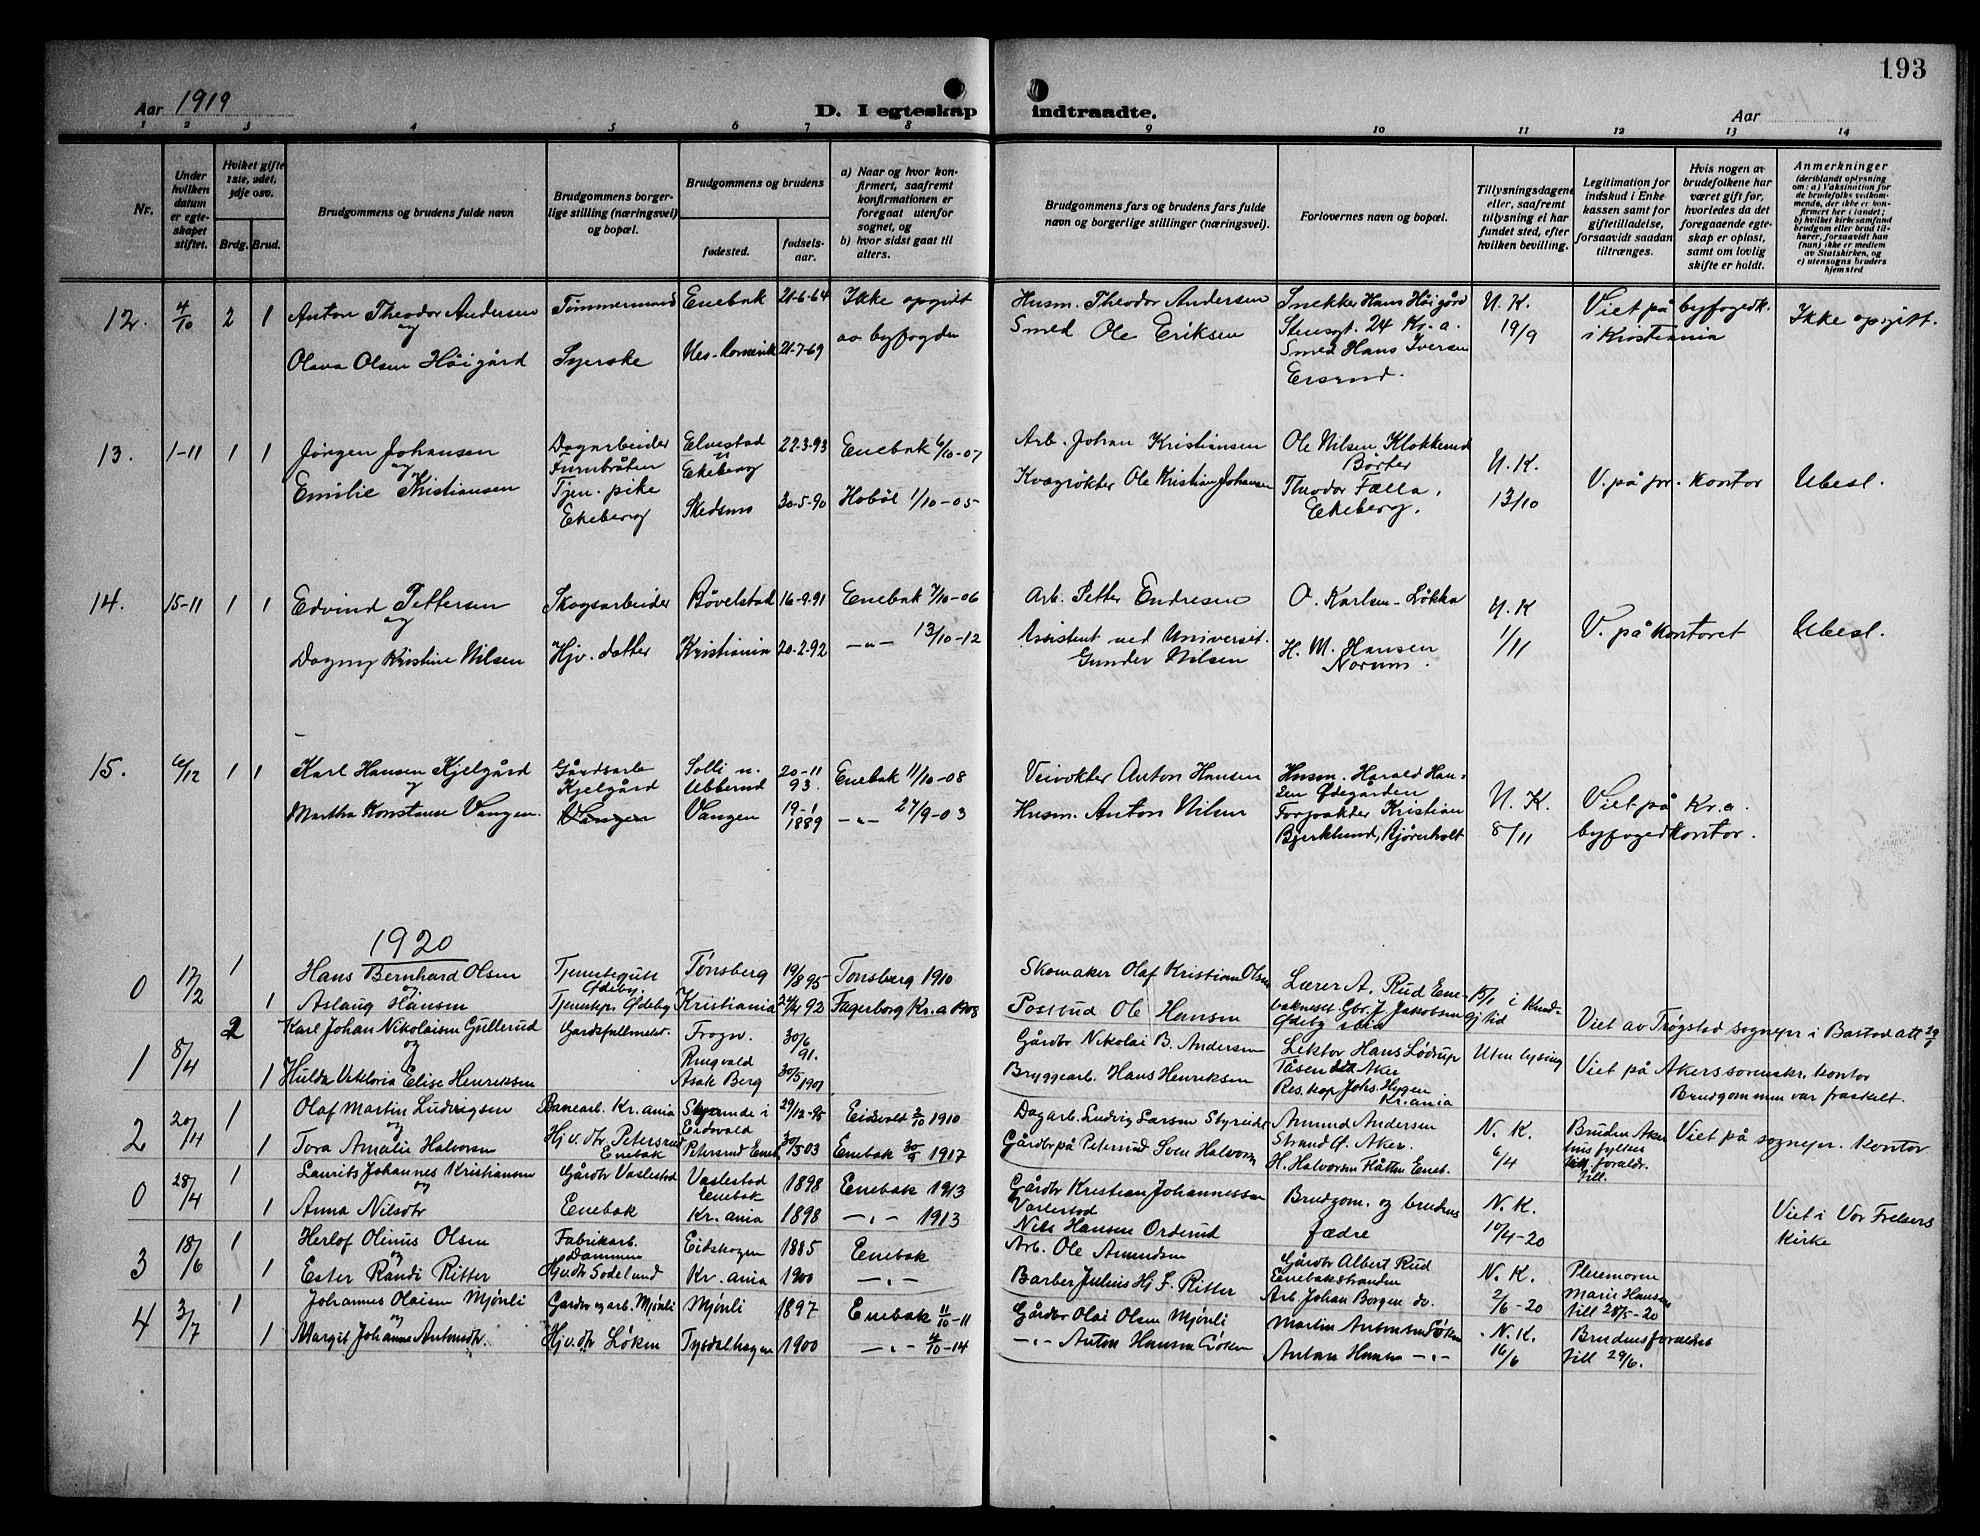 193
Aar 1919
D. I egteskap indtraadte.
Aar
1 2 3 4 5 6 7 8 9 10 11 12 13 14
Nr.
Under hvilken datum er egteskapet stiftet.
Hvilket gifte 1ste, 2det, 3dje osv.
Brdg. Brud.
Brudgommens og brudens fulde navn
Brudgommens borgerlige stilling (næringsvei) og bopæl.
Brudgommens og brudens
fødested.
fødselsaar.
a) Naar og hvor konfirmert, saafremt konfirmationen er foregaat utenfor sognet, og
b) hvor sidst gaat til alters.
Brudgommens fars og brudens fars fulde navn og borgerlige stillinger (næringsvei).
Forlovernes navn og bopæl.
Tillysningsdagene eller, saafremt tillysning ei har fundet sted, efter hvilken bevilling.
Legitimation for indskud i Enkekassen samt for giftetilladelse, forsaavidt saadan tiltrænges.
Hvis nogen av brudefolkene har været gift før, hvorledes da det foregaaende egteskap er opløst, samt om lovlig skifte er holdt.
Anmerkninger
(deriblandt oplysning om: a) Vaksination for de brudefolks vedkommende, der ikke er konfirmert her i landet; b) hvilket kirkesamfund brudgom eller brud tilhører, forsaavidt han (hun) ikke er medlem av Statskirken, og c) utensogns bruders hjemsted
12. 4/10 2 1 Anton Theodor Andersen Tømmermand Enebak 21-6-64 Ikke opgitt Husm. Theodor Andersen Snekker Hans Høigård N. K. Viet på byfogedk. Ikke opgitt.
og
Olava Olsen Høigård Syerske Nes. Romerik 21-7-69 av byfogden Smed Ole Eriksen Stensgt. 24 Kr.a. 19/9 i Kristiania
Smed Hans Iversen
13. 1-11 1 1 Jørgen Johansen Dagarbeider Elvestad 22-3-93 Enebak 6/10-07 Arb. Johan Kristiansen Ole Nilsen Klokkerud N. K. V. på pr. kontor Ubesl.
og Furubråten Ekeberg Børter
Emilie Kristiansen Tjen. pike Skedsmo 30-5-90 Hobøl 1/10-05 Kvægrøkter Ole Kristian Johansen Theodor Fælla, 13/10
Ekeberg Ekeberg.
14. 15-11 1 1 Edvind Pettersen Skogsarbeider Bøvelstad 16-9-91 Enebak 7/10-06 Arb. Petter Endresen O. Karlsen-Løkka N. K V. på kontoret Ubesl.
og
Dagny Kristine Nilsen Hjv. datter Kristiania 20-2-92 -„- 13/10-12 Assistent ved Universit. Gunder Nilsen H. M. Hansen Norum. 1/11
15. 6/12 1 1 Karl Hansen Kjelgård Gårdsarb Kjelgård Solli u. Ubberud 20-11 93. Enebak 11/10-08 Veivokter Anton Hansen Husm. Harald Hansen Ødegården N. K. Viet på Kr.a.
og
Martha Konstanse Vangen. Vangen Vangen 19-1 1889 -„- 27/9-03 Husm. Anton Nilsen Kristian Bjerklund, Bjørnholt 8/11 byfogedkontor.
1920
0 17/2 1 Hans Bernhard Olsen Tjenestegutt Ødeby. Tønsberg 19/8 95 Tønsberg 1910 Skomaker Olaf Kristian Olsen Lærer A. Rud
og
1 Aslaug Hansen Ødeby Kristiania 24/4 92 Fagerborg Kr.a 1908 Postbud Ole Hansen Gbr. J Jakobsen Ødeby ibid Viet av Trøgstad sognepr i Båstad
1 8/4 2 Karl Johan Nikolaisen Gullerud Gårdsfullmekt. Frogn. 30/6 91. Gårdbr Nikolai B. Andersen Lektor Hans Lødrup Uten lysing Viet på Akers sorenskr. kontor
og Ringvald Tåsen Aker
1 Hulda Viktoria Elise Henriksen Asak Berg 30/5 1901 Bryggearb. Hans Henriksen Res. kap Johs. Hygen Kr.ania Brudgommen var fraskilt.
2 20/4 1 Olaf Martin Ludvigsen Banearb. Kr.ania Eidsvold 29/12-95 Eidsvold 2/10 1910 Dagarb. Ludvig Larsen Amund Andersen N. K. Bruden Akershus fylkes Viet på sognepr. kontor
og Strand Ø. Aker.
1 Tora Amalie Halvorsen Hjv. dtr Petersrud Enebak Petersrud Eneb. 30/5 03 Enebak 30/9 1917 Gårdbr på Petersrud Sven Halvorsn H. Halvorsen Flåtten Eneb. 6/4 till.
0 28/4 1 Laurits Johannes Kristiansen Gårdbr Vaslestad Vaslestad Enebak 1898 Enebak 1913 Gårdbr Kristian Johannessen Vaslestad Brudgom. og brudens N. K.
og
1 Anna Nilsdtr Enebak Kr. ania 1898 -„- 1913 Nils Hansen Orderud fædre 10/4-20 Viet i Vor Frelsers Kirke
3 18/6 1 Herlof Olinus Olsen Fabrikarb. Dammen Eidskogen 1885 Enebak Arb. Ole Amundsen Gårdbr Albert Rud Enebakstranden N. K. Pleiemoren
og
1 Ester Randi Ritter Hjvdtr Kr. ania 1900 -„- Barber Julius Hj. F. Ritter Arb. Johan Borgen do. 2/6-20 Marie Hansens till 28/5-20
4 3/7 1 Johannes Olaisen Mjønli Gårdbr og arb. Mjønli Mjønli 1897 Enebak 11/10-11 Gårdbr Olai Olsen Mjønli Martin Antonsen Løken N. K. Brudens foreldres
og
1 Margit Johanne Antonsdtr. Hjv. dtr Løken Tysdalhagen 1900 -„- 4/10-14 -„- Anton Hansen Løken Anton Hansen -„- 16/6 till 29/6.